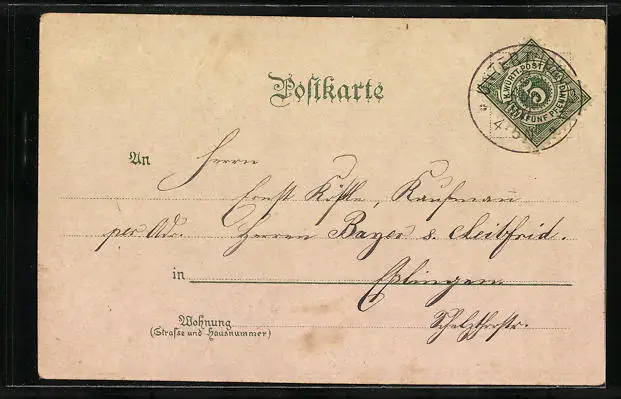 Postkarte
K. WÜRTT. POST
5
FÜNF PFENNIG
An Herrn
Ernst Köstle, Kaufmann
per Adr. Herren Bayer & Leibfrid.
in Eßlingen
Wohnung Schelzthorstr.
(Strasse und Hausnummer)